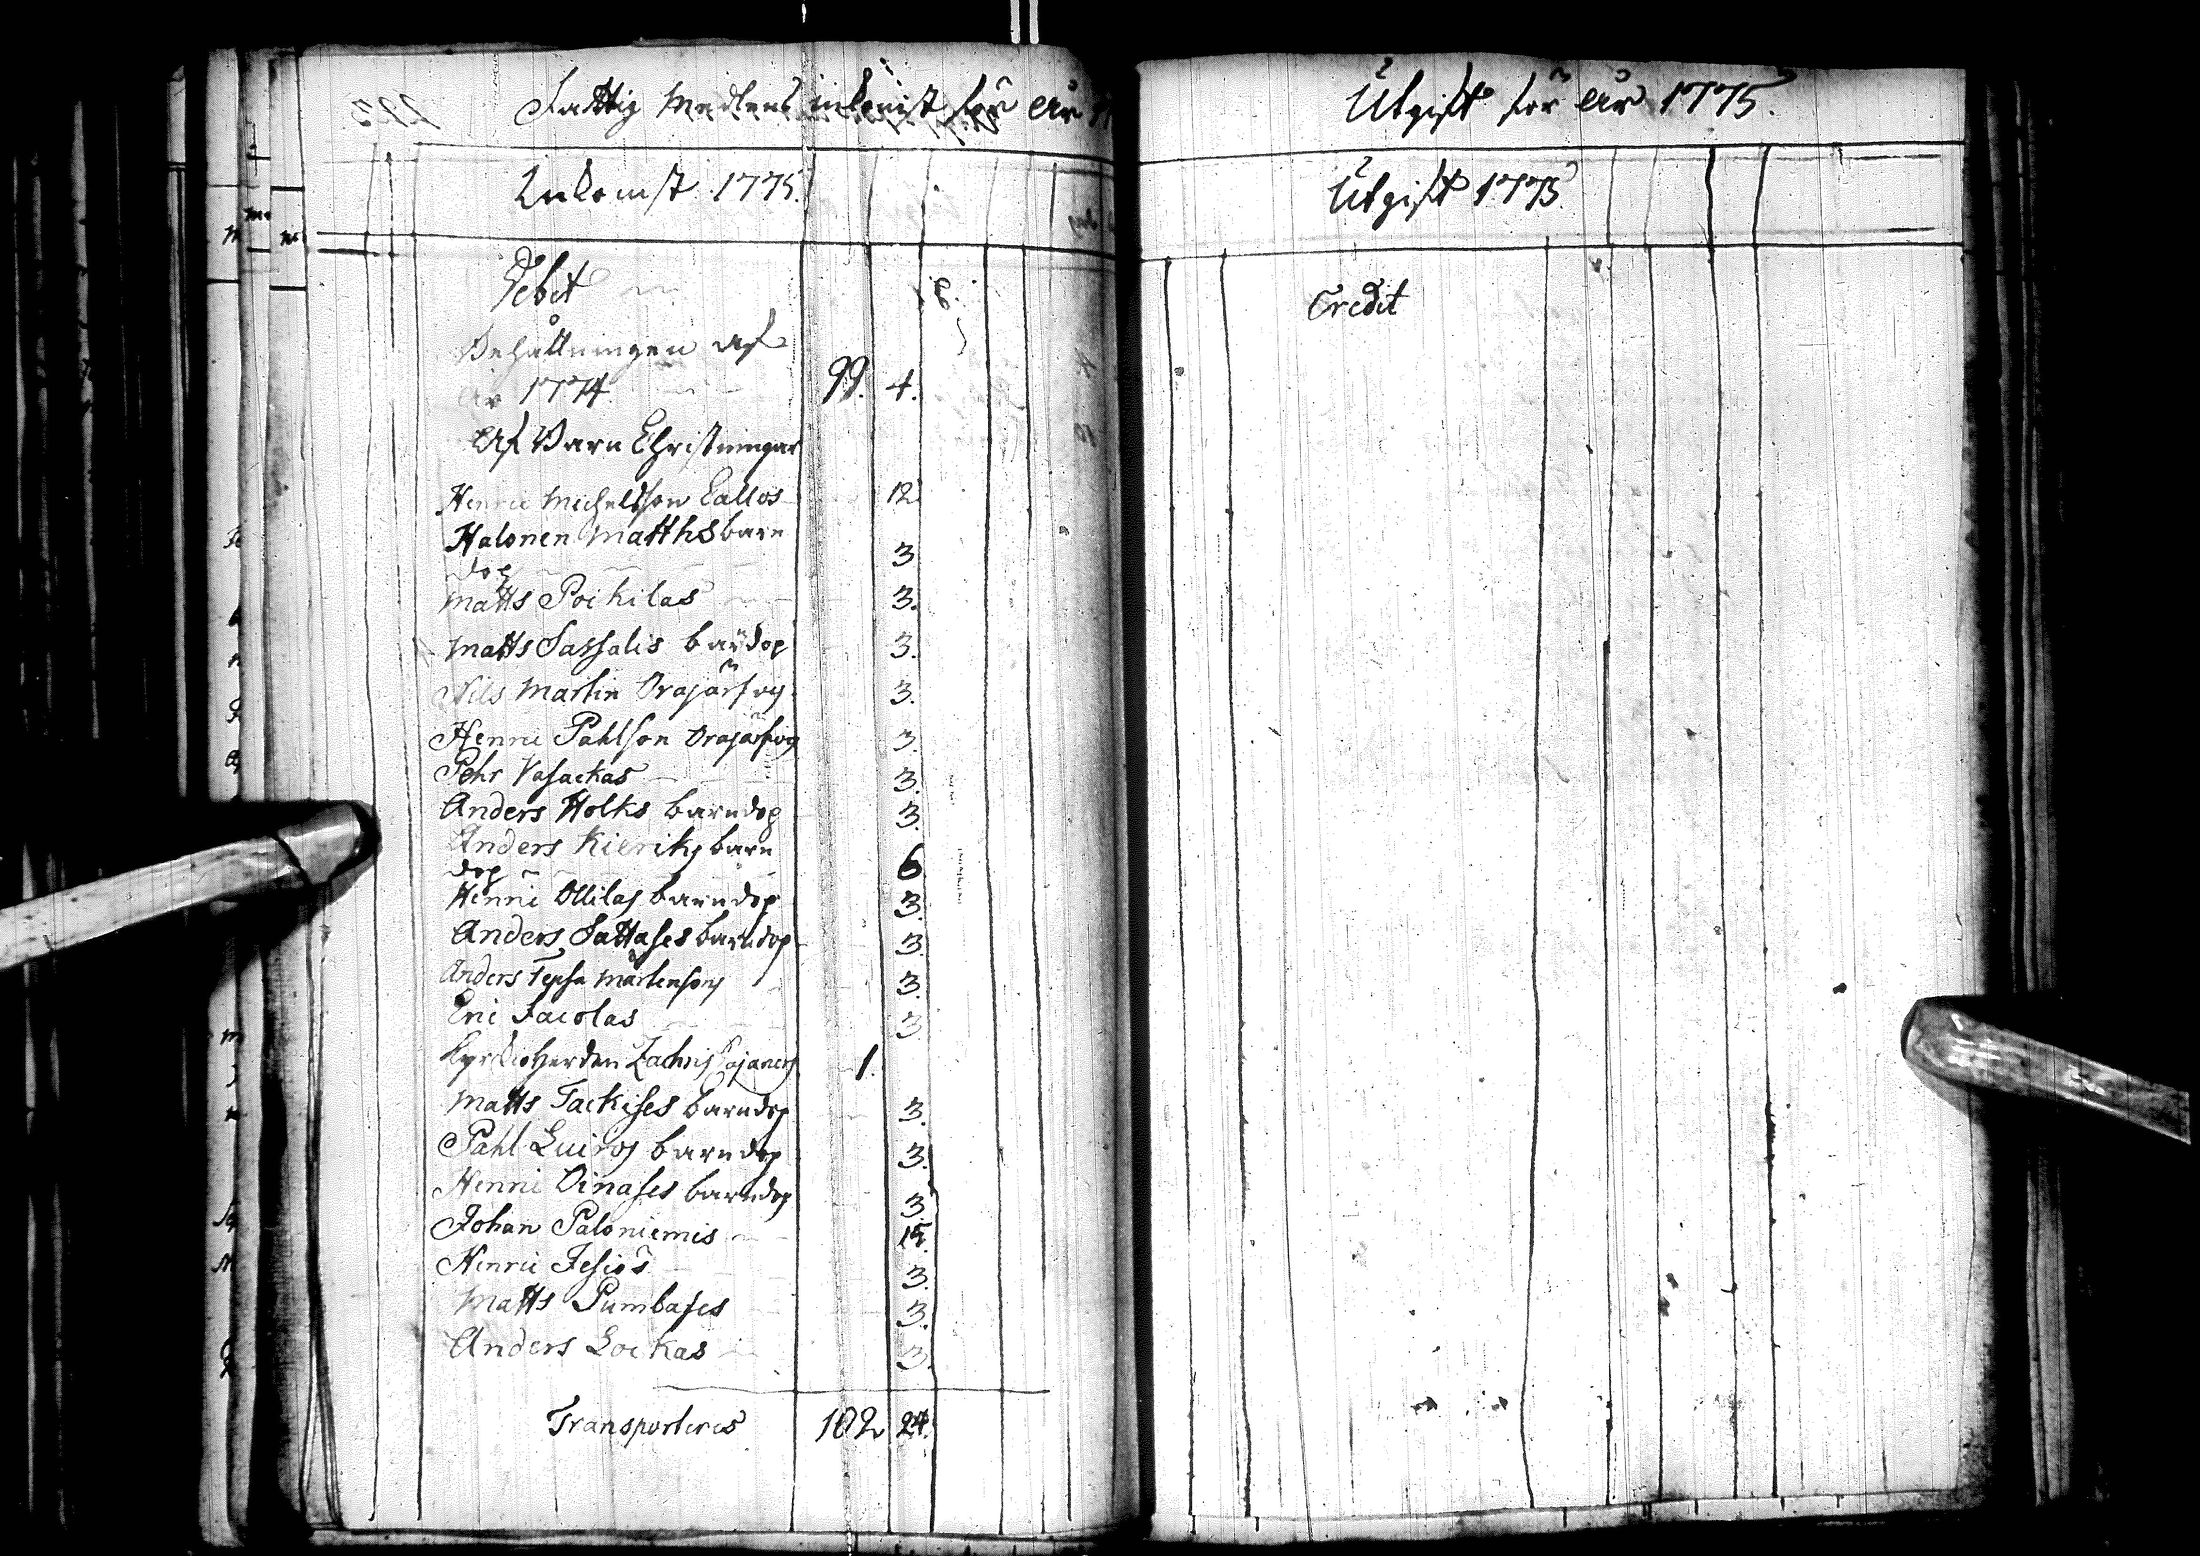 Fattig Medlens inkomst för år 1
Inkomst 1775.
Debet
Behållningen af
år 1774 99. 4.
Af Barn Christningar
Henric Michelsson Callos 12
Halonen Matths barn
dop 3
Matts Poikilas 3.
Matts Sassalis barndop 3.
Nils Martin Orajärfvy 3.
Henric Pahlson Orajärfvy 3.
Pehr Vasackas 3.
Anders Holks barndop 3.
Anders Kieriky barn
dop 6
Henric Ollilas barndop 3.
Anders Sattases barndop 3.
Anders Tepsa Mårtensons 3.
Eric Jacolas 3
Kyrckioherden Zachris Cajaners 1.
Matts Tackises barndop 3.
Pahl Luiros barndop 3.
Henric Oinases barndop 3.
Johan Paloniemis 15.
Henric Jesiös 3.
Matts Pumbases 3.
Anders Lockas 3.
Transporteres 102 24.
Utgift för år 1775.
Utgift 1775
Credit